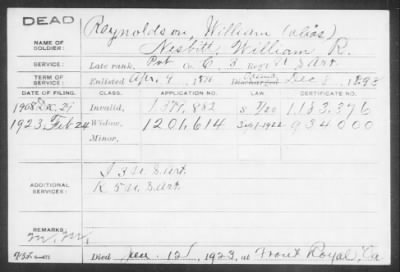 DEAD
NAME OF SOLDIER: Reynoldson, William (alias)
Nesbitt, William R.
SERVICE: Late rank, Pvt Co. C, 3 Reg't U S Art
TERM OF SERVICE: Enlisted Apr. 9, 18 Discharged Dec 8, 1898
DATE OF FILING. CLASS. APPLICATION NO. LAW. CERTIFICATE NO.
1908 Dec. 21 Invalid, 1,183,376
1923 Feb 24 Widow, 1201,614 934000
Minor,
ADDITIONAL SERVICES: I 3 U. S. Art.
K 5 U. S. Art.
REMARKS:
Died Jan. 12, 1923, at Front Royal, Va